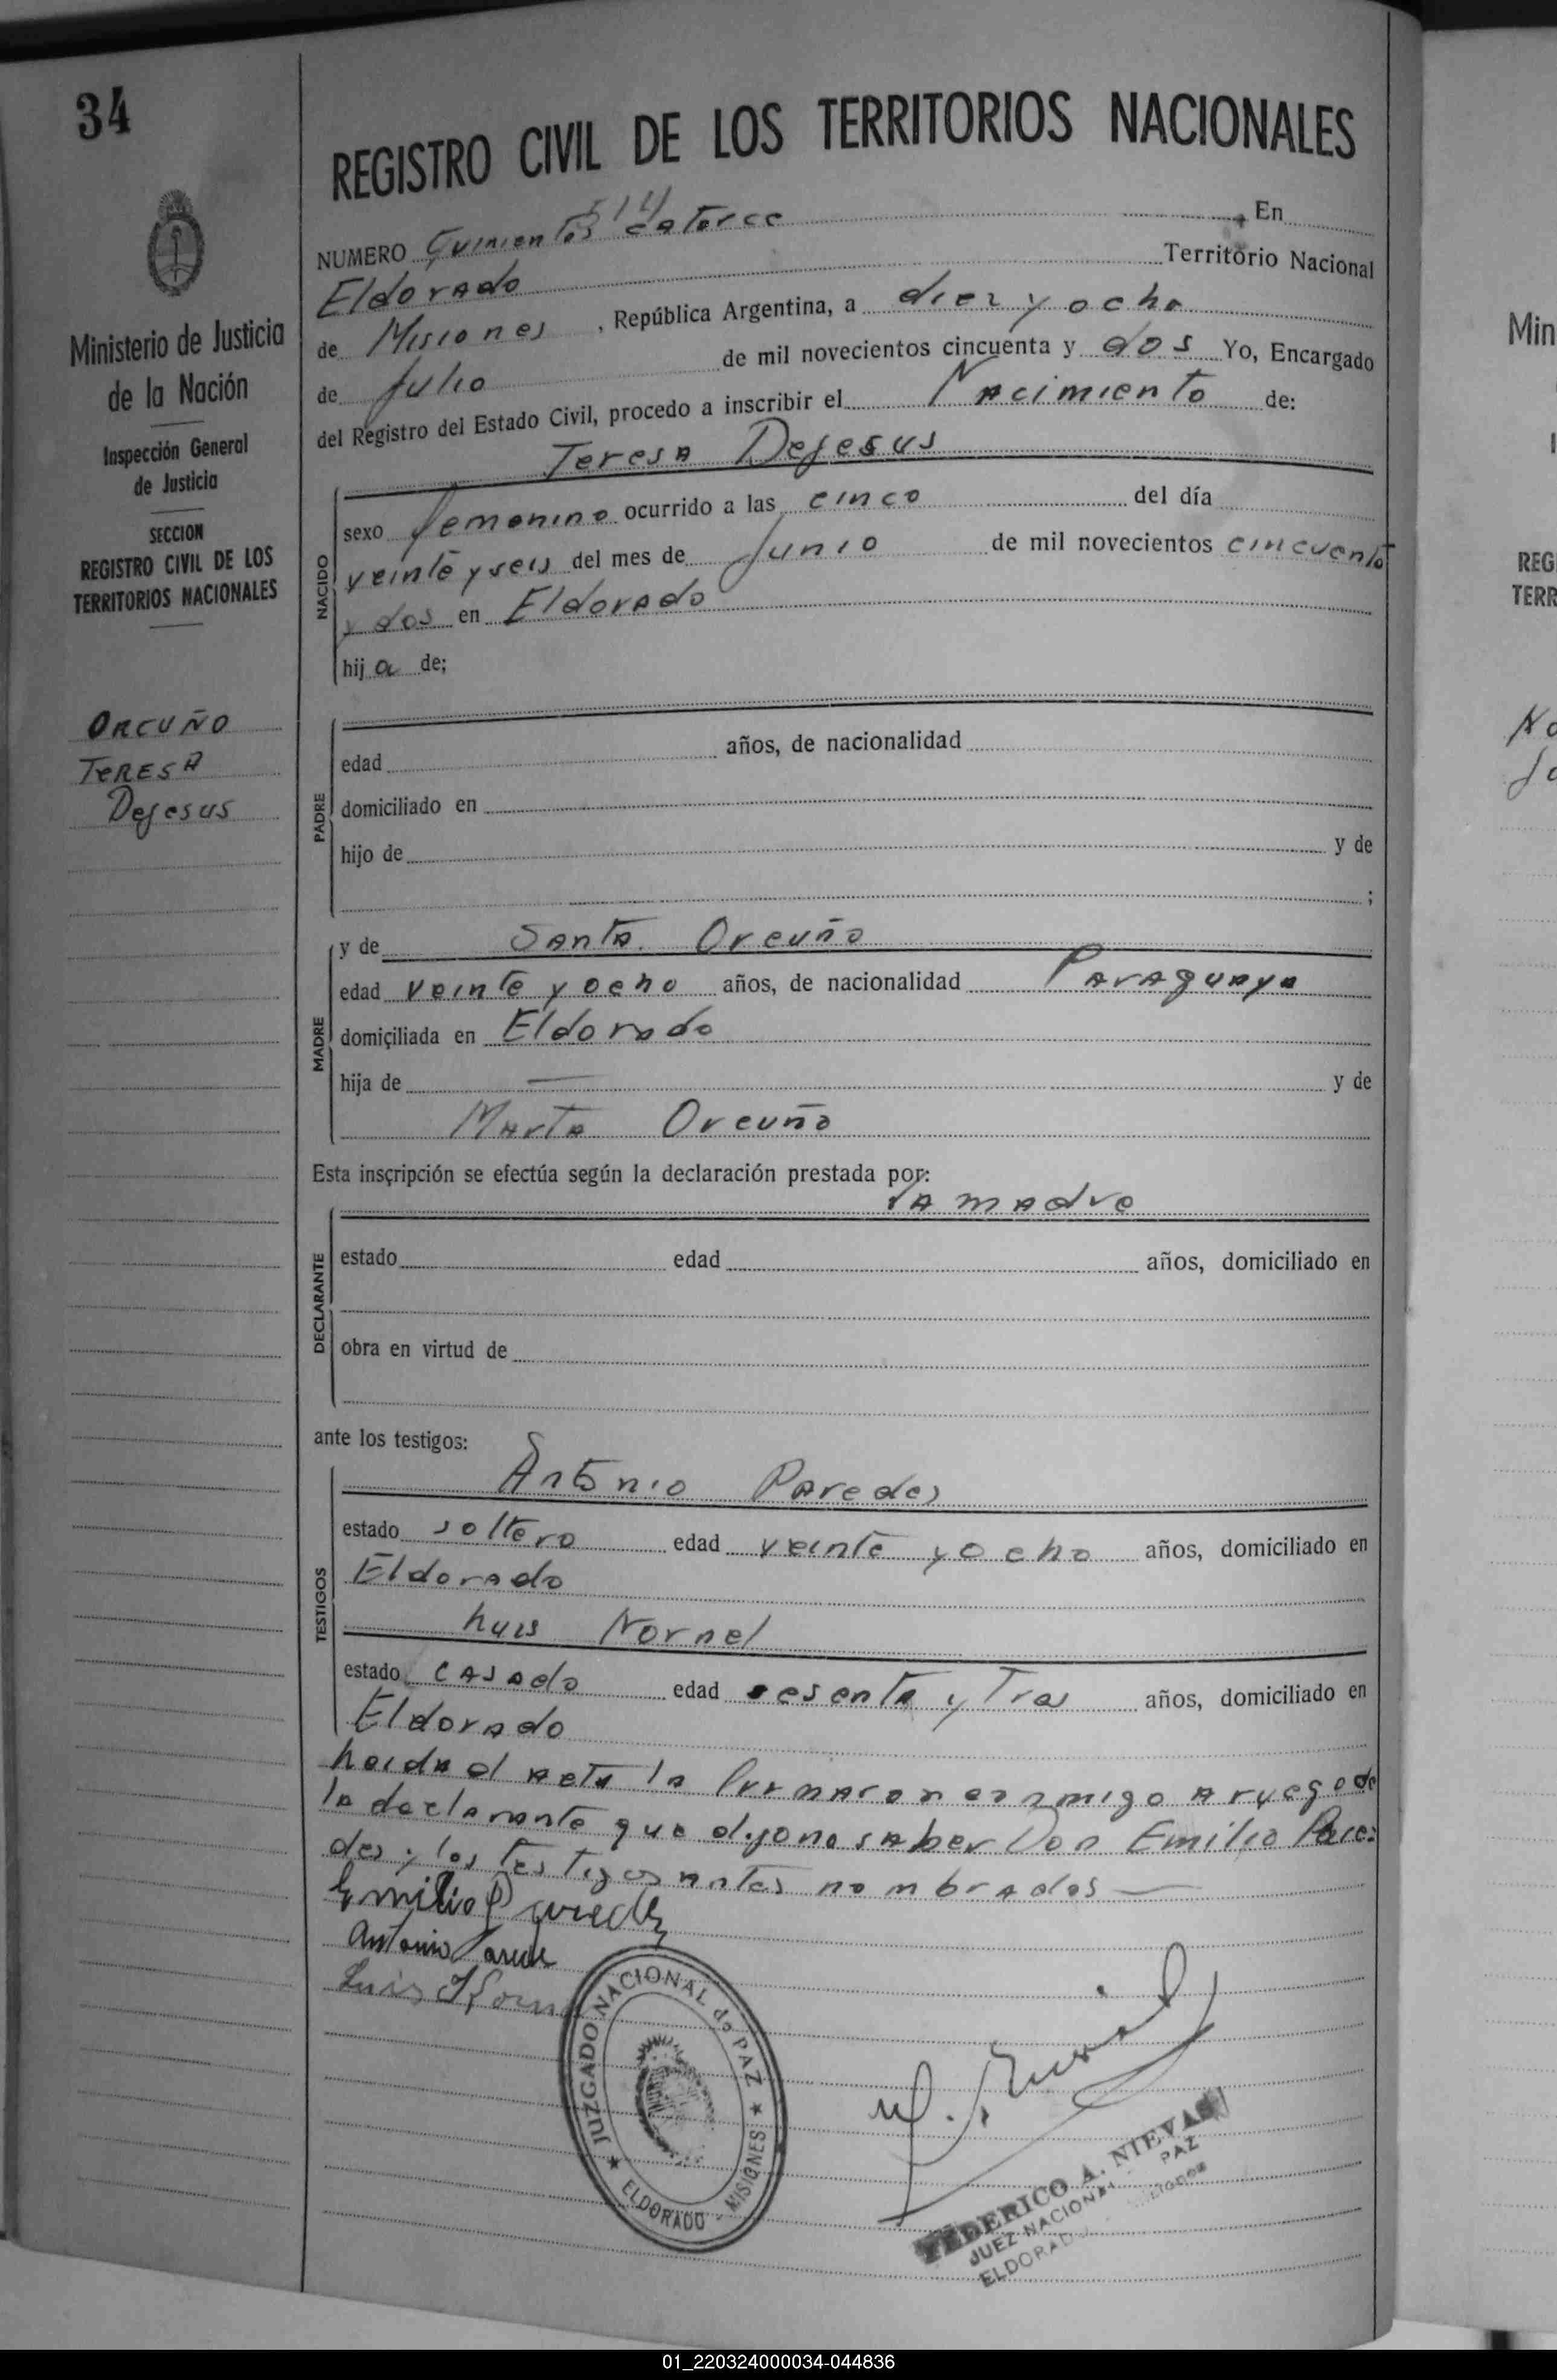 34
REGISTRO CIVIL DE LOS TERRITORIOS NACIONALES
Ministerio de Justicia
de la Nación
Inspección General
de Justicia
SECCION
REGISTRO CIVIL DE LOS
TERRITORIOS NACIONALES
ORCUÑO
TERESA
Dejesus
514
NUMERO Quinientos catorce En
Eldorado Territorio Nacional
de Misiones, República Argentina, a diez y ocho
de Julio de mil novecientos cincuenta y dos Yo, Encargado
del Registro del Estado Civil, procedo a inscribir el Nacimiento de:
Teresa Dejesus
NACIDO
sexo femenino ocurrido a las cinco del día
veinte y seis del mes de Junio de mil novecientos cincuenta
y dos en Eldorado
hija de;
PADRE
edad años, de nacionalidad
domiciliado en
hijo de y de
;
MADRE
y de Santa Orcuño
edad veinte y ocho años, de nacionalidad Paraguaya
domiciliada en Eldorado
hija de — y de
Marta Orcuño
Esta inscripción se efectúa según la declaración prestada por:
la madre
DECLARANTE
estado edad años, domiciliado en
obra en virtud de
ante los testigos:
TESTIGOS
Antonio Paredes
estado soltero edad veinte y ocho años, domiciliado en
Eldorado
Luis Nornel
estado casado edad sesenta y tres años, domiciliado en
Eldorado
Leida el acta la firmaron conmigo a ruego de
la declarante que dijo no saber Don Emilio Pare=
des y los testigos antes nombrados —
Emilio Paredes
Antonio Parede
Luis
JUZGADO NACIONAL de PAZ
★ ELDORADO - MISIONES ★
FEDERICO A. NIEVAS
JUEZ NACIONAL PAZ
ELDORADO
Min
REG
TERR
01_220324000034-044836